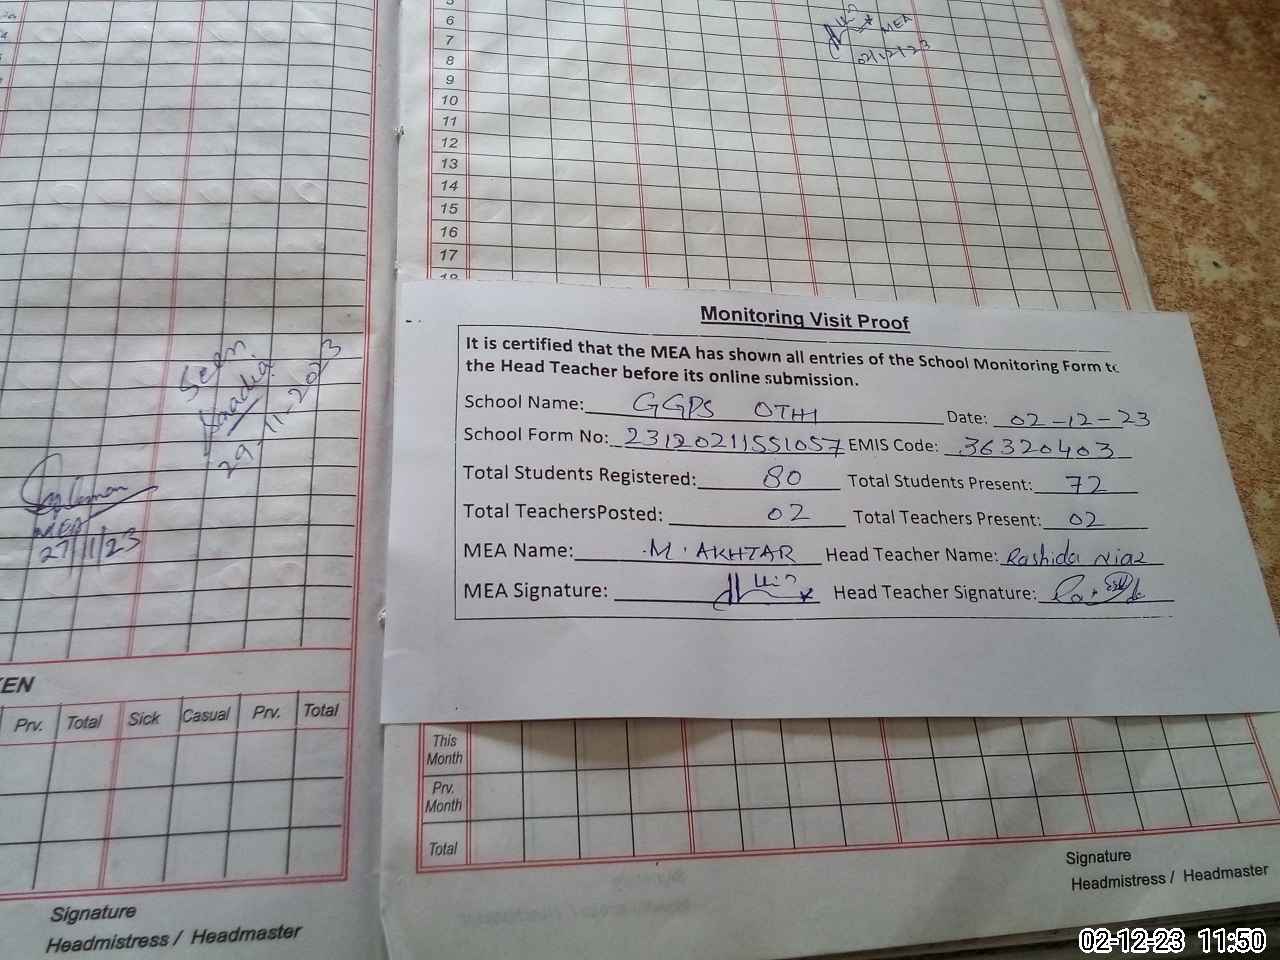 5
6
7
8
9
10
11
12
13
14
15
16
17
18
MEA
02/12/23
Seen
29-11-2023
MEA
27/11/23
Monitoring Visit Proof
It is certified that the MEA has shown all entries of the School Monitoring Form to
the Head Teacher before its online submission.
School Name: GGPS OTHI Date: 02-12-23
School Form No: 23120211551057 EMIS Code: 36320403
Total Students Registered: 80 Total Students Present: 72
Total TeachersPosted: 02 Total Teachers Present: 02
MEA Name: M. AKHTAR Head Teacher Name: Rashida Niaz
MEA Signature: Head Teacher Signature:
EN
Prv. Total Sick Casual Prv. Total
This
Month
Prv.
Month
Total
Signature
Headmistress / Headmaster
Signature
Headmistress / Headmaster
02-12-23 11:50